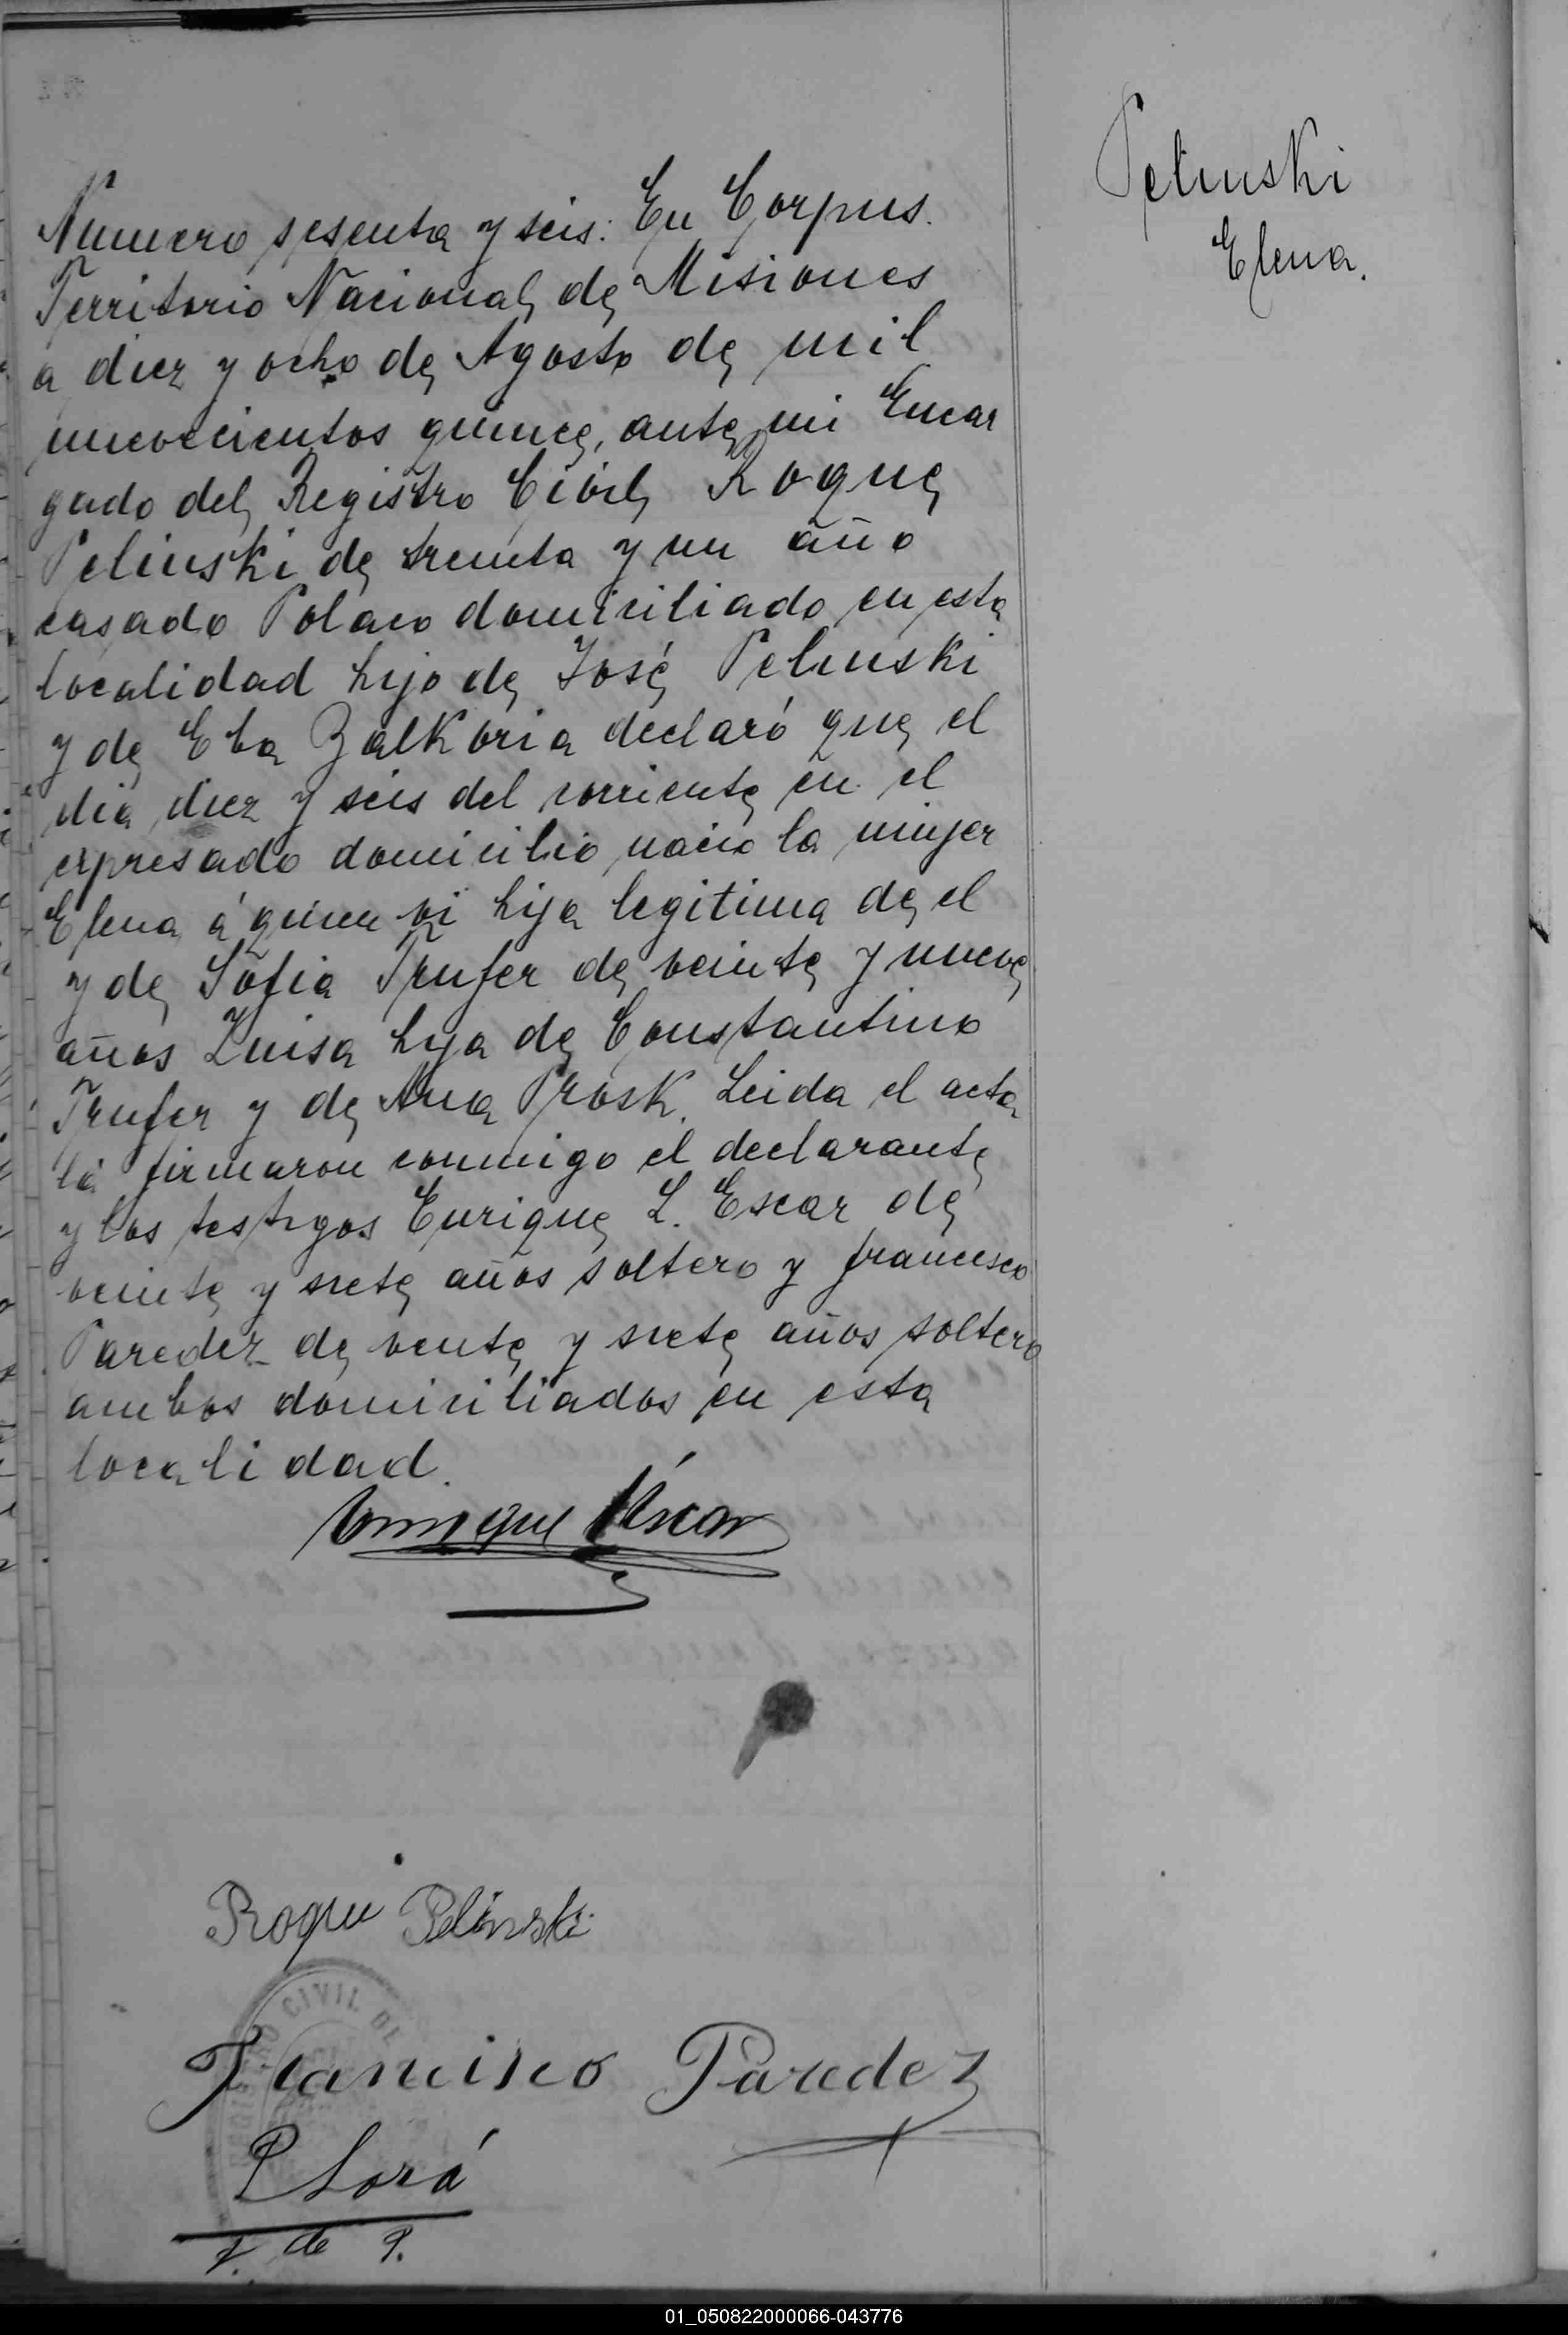 Pelinski
Elena.
Numero sesenta y seis: En Corpus.
Territorio Nacional de Misiones
a diez y ocho de Agosto de mil
nuevecientos quince, ante mi Encar
gado del Registro Civil, Roque
Pelinski de treinta y un año
casado Polaco domiciliado en esta
localidad hijo de José Pelinski
y de Eba Zalkoria declaró que el
dia diez y seis del corriente en el
expresado domicilio nacio la mujer
Elena á quien vi hija legitima de el
y de Sofia Trufer de veinte y nueve
años Luisa hija de Constantino
Trufer y de Ana Prosk. Leida el acta
la firmaron conmigo el declarante
y los testigos Enrique L. Escar de
veinte y siete años soltero y francisco
Paredez de vente y siete años soltero
ambos domiciliados en esta
localidad.
Enrique Escar
Roque Pelinski
CIVIL DE
Francisco Paredez
P Sorá
J. de P.
01_050822000066-043776